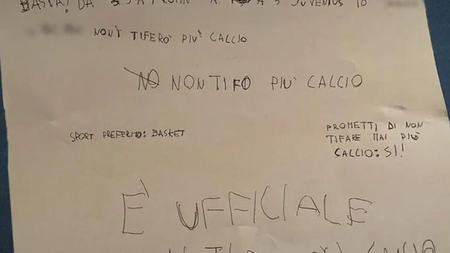 BASTA! DA JUVENTUS IO
NON TIFERO' PIU' CALCIO
NO NON TIFO PIU' CALCIO
SPORT PREFERITO: BASKET
PROMETTI DI NON
TIFARE MAI PIÙ
CALCIO: SI!
È UFFICIALE
CALCIO